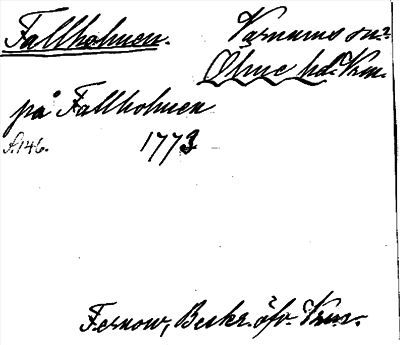 Fallholmen. Värnums sn.
Ölme hd. Vrm.
på Fallholmen
S. 146. 1773
Fernow, Beskr. öfv. Vrm.